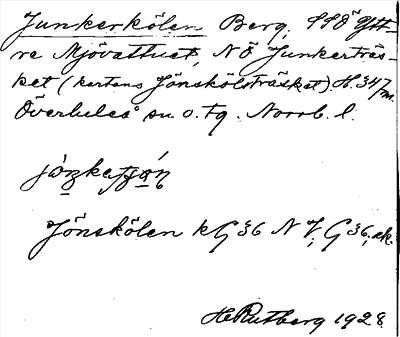 Junkerkölen Berg, SSÖ Ytt-
re Mjövattnet, NÖ Junkerträs-
ket (kartans Jönskölsträsket). H. 347 m.
Överluleå sn o. tg. Norrb. l.
Jönskölen k G 36 N V; G 36, ek.
H Rutberg 1928